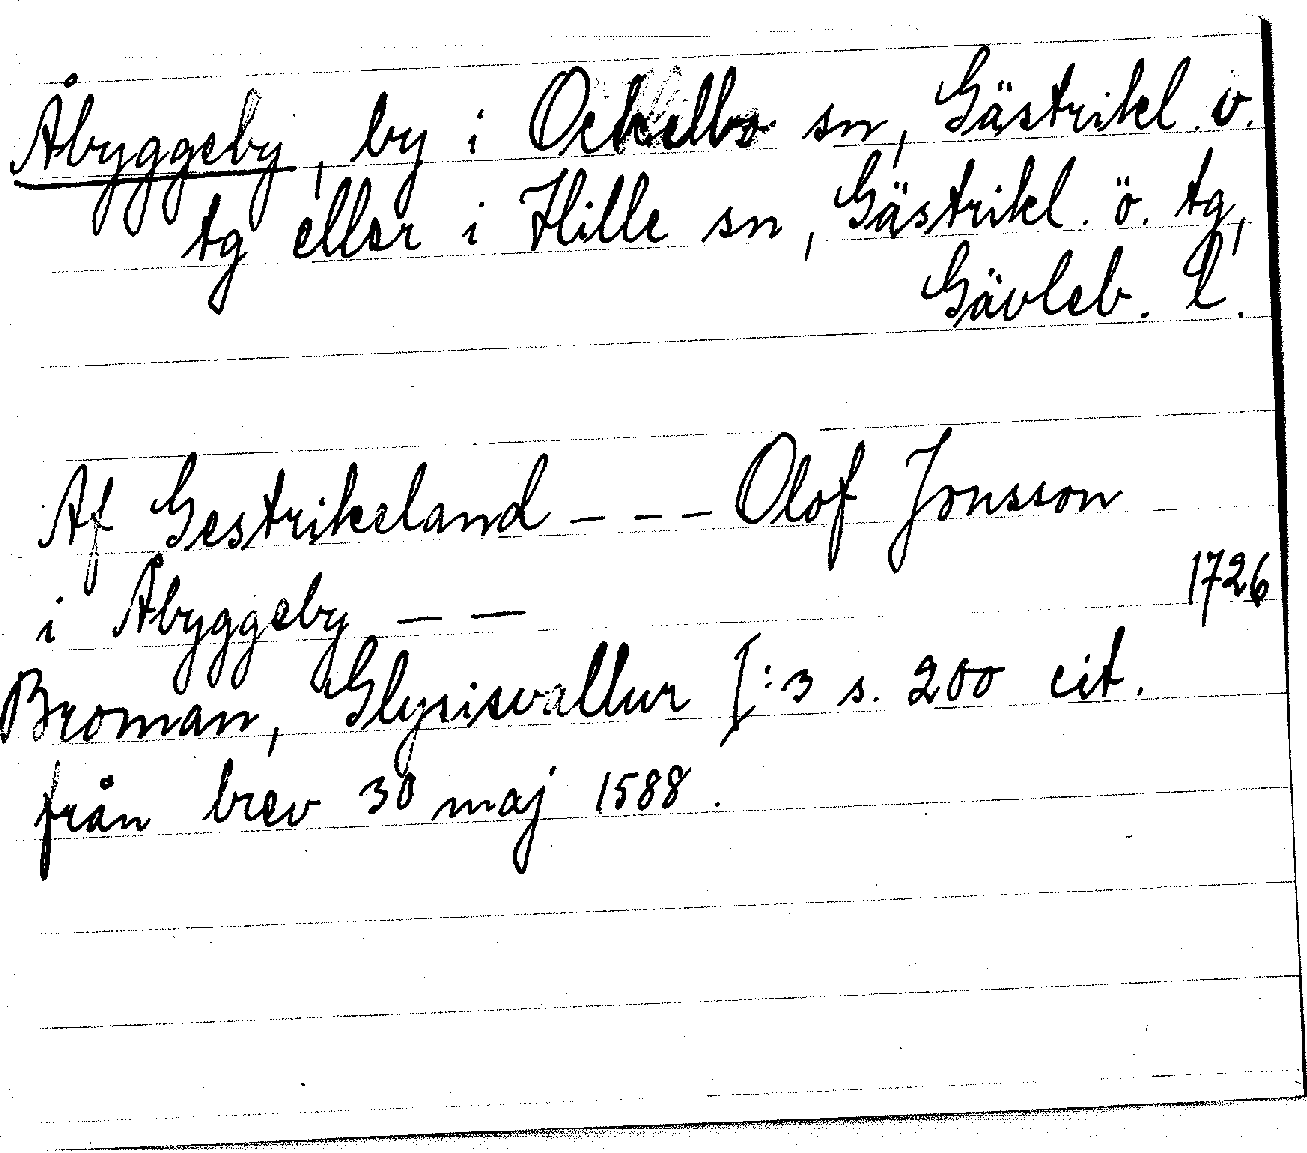 Åbyggeby, by i Ockelbo sn, Gästrikl. v.
tg eller i Hille sn, Gästrikl. ö. tg,
Gävleb. l.
Af Gestrikeland - - - Olof Jonsson
i Åbyggeby - - 1726
Broman, Glysisvallur I:3 s. 200 cit.
från brev 30 maj 1588.